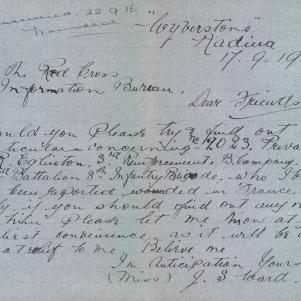 22.9.16
"Weyverstone"
Radina
17.9.19
The Red Cross
Information Bureau.
Dear Friends
ould you Please try & find out
ticulars concerning No 2023, Priva
R Eglinton, 3rd Reinforcement, B Company
Battalion 8th Infantry Brigade, who I
been reported wounded in France.
if you should find out any
him Please let me know at
irst convenience, as it will be
relief to me. Believe me
In Anticipation Yours
(Miss) J. S Ward.